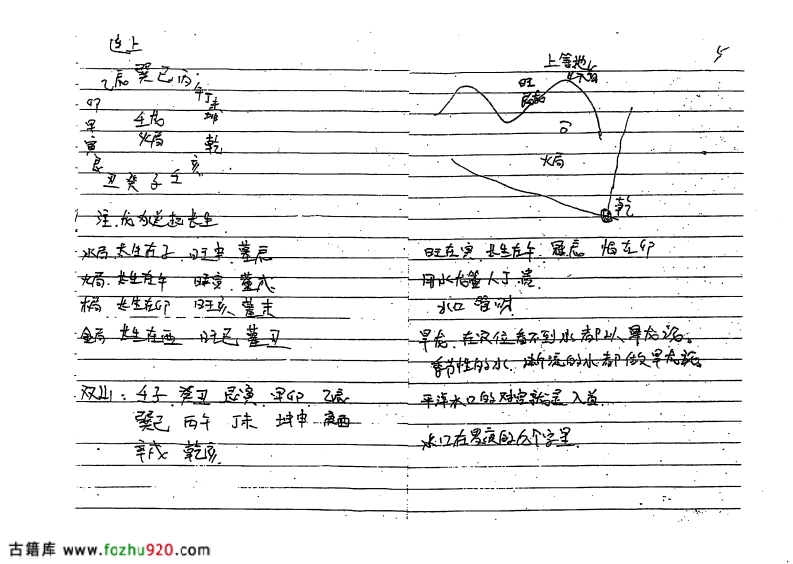 连上
乙辰巽巳丙午丁未坤
卯
甲
寅
艮
火局
乾
亥
丑癸子壬
注:龙为逆拉长生
水局 长生在子 旺申 墓辰
火局 长生在午 旺寅 墓戌
木局 长生在卯 旺亥 墓未
金局 长生在酉 旺巳 墓丑
双山: 壬子 癸丑 艮寅 甲卯 乙辰
巽巳 丙午 丁未 坤申 庚酉
辛戌 乾亥
5
上等地
旺
火局
乾
旺在寅 长生在午
用水龙管人丁贵
水口管财
旱龙,在穴位看不到水都以旱龙论。
季节性的水、断流的水都做旱龙论。
平洋水口的对宫就是入首
水口在墓库的六个字里
古籍库 www.fozhu920.com